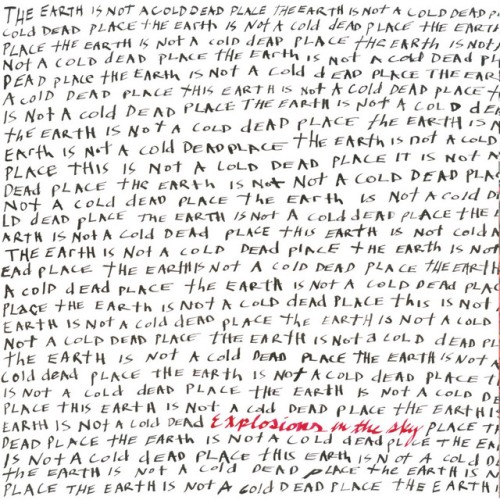 THE EARTH IS NOT A COLD DEAD PLACE THE EARTH IS NOT A COLD DEAD P
COLD DEAD PLACE THE EARTH IS NOT A COLD dEAd PLACE THE EARTH
PLACE THE EARTH IS NOT A COLD dEAD PLACE THE EARTH IS NOT
NOT A COLD dEAD PLACE THE EARTH IS NOT A COLD DEAD PL
DEAD PLACE THE EARTH IS NOT A COLD dEAD PLACE THE EAR
A COLD DEAD PLACE THIS EARTH IS NOT A COLD DEAD PLACE
IS NOT A COLD DEAD PLACE THE EARTH IS NOT A COLD DE
THE EARTH IS NOT A COLD dEAD PLACE THE EARTH IS N
EARTH IS NOT A COLD DEAD PLACE THE EARTH IS NOT A COLD
PLACE THIS IS NOT A COLD DEAD PLACE IT IS NOT A
DEAD PLACE THE EARTH IS NOT NOT A COLD DEAD PLA
NOT A COLD DEAD PLACE THE EARTH IS NOT A COLD D
LD DEAD PLACE THE EARTH IS NOT A COLD DEAD PLACE THE
ARTH IS NOT A COLD DEAD PLACE THIS EARTH IS NOT COLD A
THE EARTH IS NOT A COLD DEAD PLACE THE EARTH IS NOT
EAD PLACE THE EARTH IS NOT A COLD DEAD PLACE THE EARTH
A COLD dEAD PLACE THE EARTH IS NOT A COLD DEAD PLAC
PLACE THE EARTH IS NOT A COLD DEAD PLACE THIS IS NOT
EARTH IS NOT A COLD dEAD PLACE THE EARTH IS NOT A COLD
NOT A COLD DEAD PLACE THE EARTH IS NOT A COLD DEAD PL
THE EARTH IS NOT A COLD DEAD PLACE THE EARTH IS NOT A
COLD dEAD PLACE THE EARTH IS NOT A COLD DEAD PLACE T
IS NOT A COLD dEAD PLACE THE EARTH IS NOT A COLD DE
PLACE THIS EARTH IS NOT A COLD DEAD PLACE THE EARTH I
EARTH IS NOT A COLD DEAD Explosions in the sky PLACE T
DEAD PLACE THE EARTH IS NOT A COLD dEAD PLACE THE EA
IS NOT A COLD dEAD PLACE THIS EARTH IS NOT A COLD D
THE EARTH IS NOT A COLD DEAD PLACE THE EARTH IS N
PLACE THE EARTH IS NOT A COLD DEAD PLACE THE EARTH IS